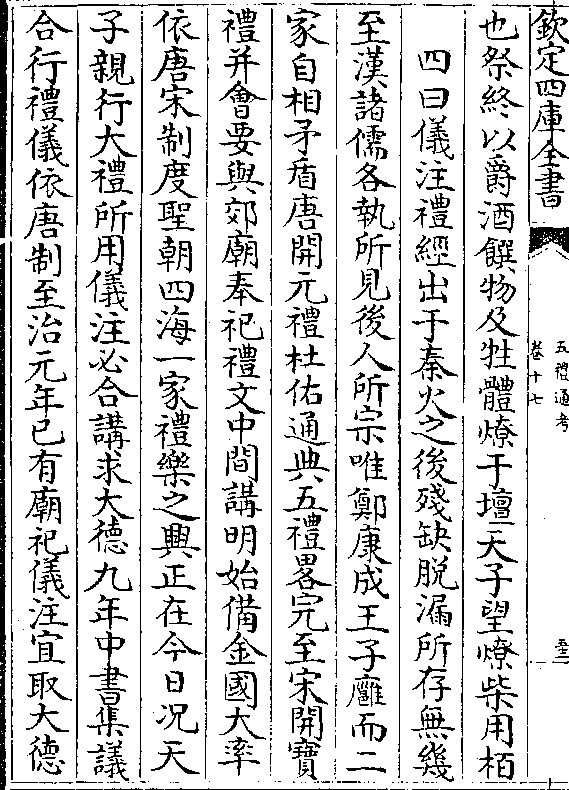 欽定四庫全書
五禮通考
卷十七
至
也祭終以爵酒饌物及牲體燎于壇天子望燎柴用栢
四曰儀注禮經出于秦火之後殘缺脱漏所存無幾
至漢諸儒各執所見後人所宗唯鄭康成王子雝而二
家自相矛盾唐開元禮杜佑通典五禮畧完至宋開寶
禮并會要與郊廟奉祀禮文中間講明始備金國大率
依唐宋制度聖朝四海一家禮樂之興正在今日况天
子親行大禮所用儀注必合講求大德九年中書集議
合行禮儀依唐制至治元年已有廟祀儀注宜取大德